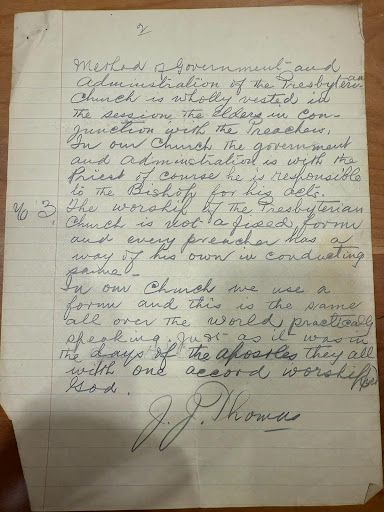 2
Method of Government and
Administration of the Presbyterian
Church is wholly vested in
the session, the Elders in con-
junction with the Preachers.
In our Church the government
and administration is with the
Priest of course he is responsible
to the Bishop for his acts.
No 3. The worship of the Presbyterian
Church is not a fixed form
and every preacher has a
way of his own in conducting
same -
In our Church we use a
form and this is the same
all over the world, practically
speaking, just as it was in
the days of the apostles they all
with one accord worshiped
God.
J. J. Thomas